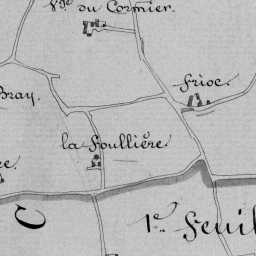 Vge. du Cormier.
Frioe.
Bray.
la Foullière.
re.
C
1re. Feuil